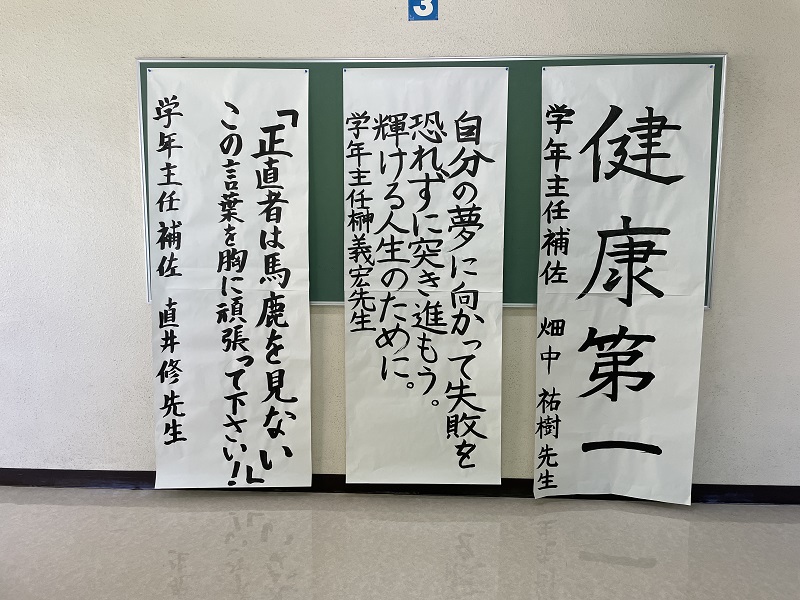 3
健康第一
学年主任補佐 畑中 祐樹先生
自分の夢に向かって失敗を
恐れずに突き進もう。
輝ける人生のために。
学年主任榊義宏先生
「正直者は馬鹿を見ない
この言葉を胸に頑張って下さい!」
学年主任補佐 直井修先生